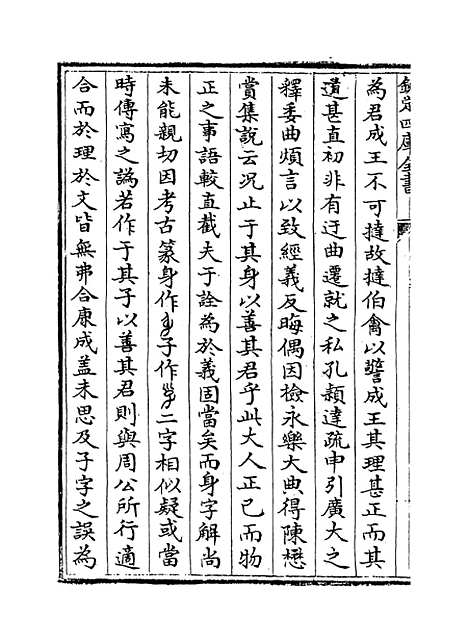 欽定四庫全書
為君成王不可撻故撻伯禽以警成王其理甚正而其
道甚直初非有迂曲遷就之私孔穎達疏申引廣大之
釋委曲煩言以致經義反晦偶因檢永樂大典得陳懋
賞集說云況止于其身以善其君乎此大人正已而物
正之事語較直截夫于詮為於義固當矣而身字解尚
未能親切因考古篆身作子作二字相似疑或當
時傳寫之譌若作于其子以善其君則與周公所行適
合而於理於文皆無弗合康成盖未思及子字之誤為